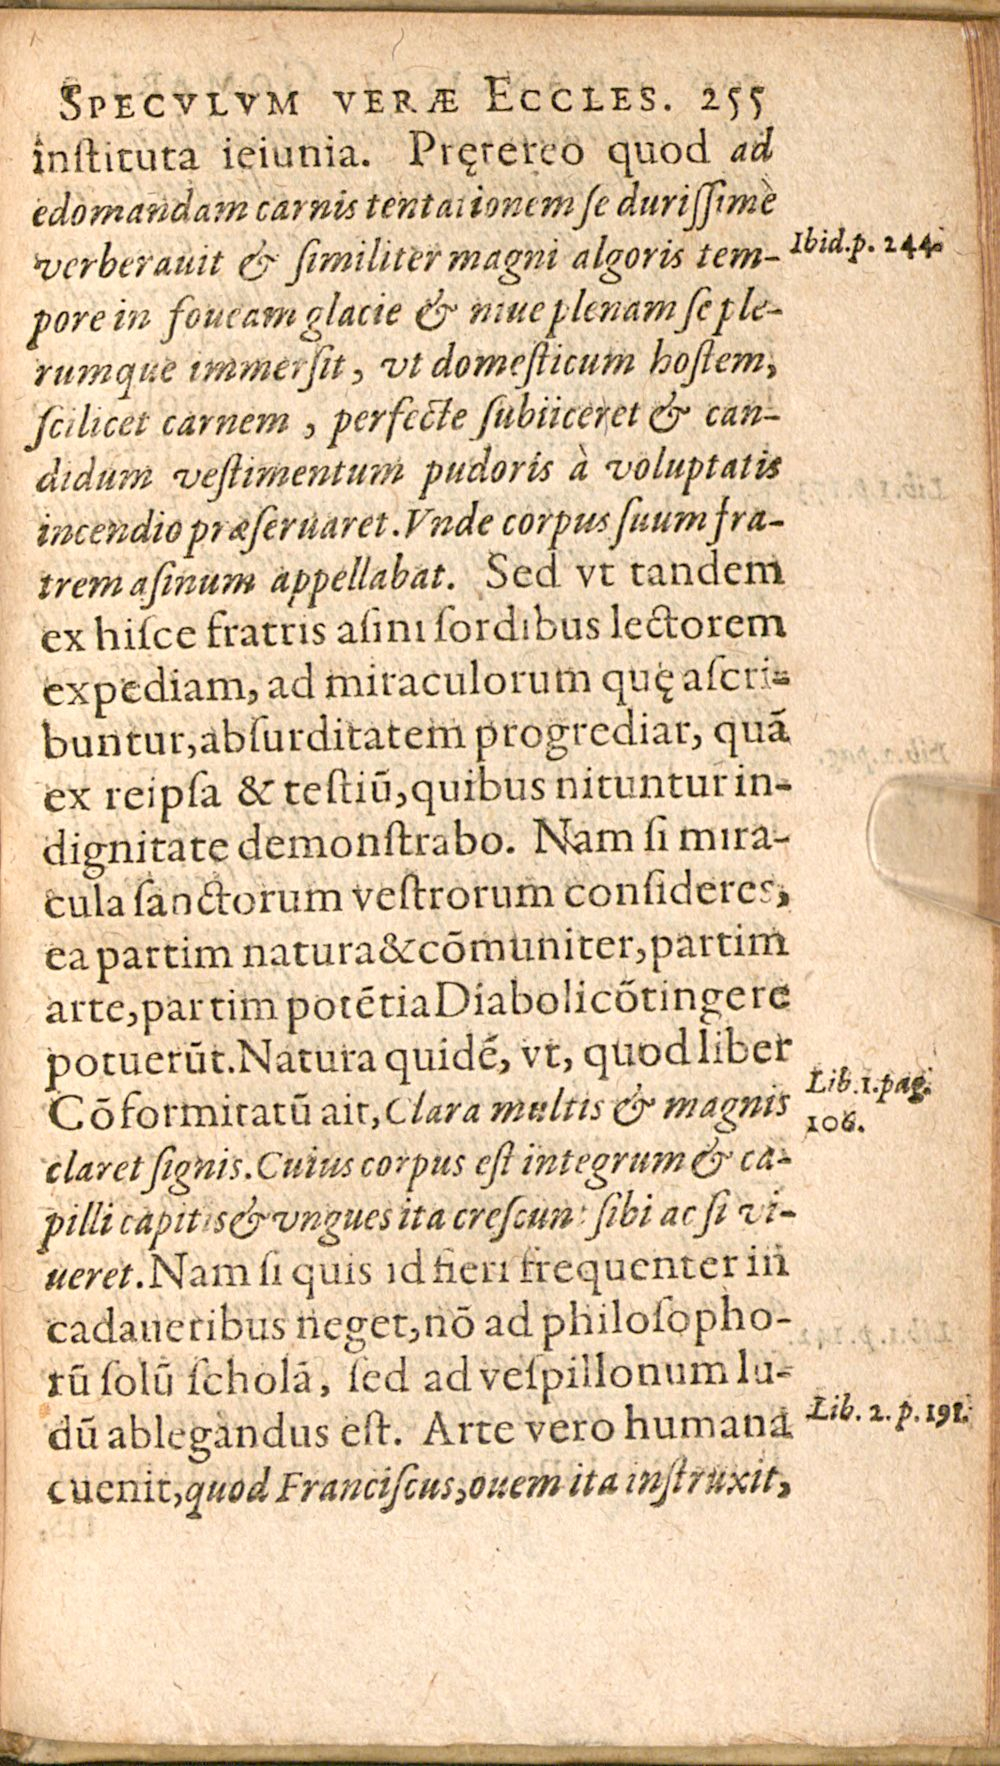 SPECVLVM VERÆ ECCLES. 255
inſtituta ieiunia. Prętereo quod ad
edomandam carnis tentationem ſe duriſſimè
verberauit & ſimiliter magni algoris tem-
Ibid.p. 244.
pore in foueam glacie & niue plenam ſe ple-
rumque immerſit, vt domeſticum hoſtem,
ſcilicet carnem, perfecte ſubiiceret & can-
didum veſtimentum pudoris à voluptatis
incendio præſeruaret. Vnde corpus ſuum fra-
trem aſinum appellabat. Sed vt tandem
ex hiſce fratris aſini ſordibus lectorem
expediam, ad miraculorum quę aſcri-
buntur, abſurditatem progrediar, quã
ex reipſa & teſtiũ, quibus nituntur in-
dignitate demonſtrabo. Nam ſi mira-
cula ſanctorum veſtrorum conſideres,
ea partim natura & cõmuniter, partim
arte, partim potẽtia Diaboli cõtingere
potuerũt. Natura quidẽ, vt, quod liber
Cõformitatũ ait, Clara multis & magnis
Lib.1.pag.
106.
claret ſignis. Cuius corpus eſt integrum & ca-
pilli capitis & vngues ita creſcunt ſibi ac ſi vi-
ueret. Nam ſi quis id fieri frequenter in
cadaueribus neget, nõ ad philoſopho-
rũ ſolũ ſcholã, ſed ad veſpillonum lu-
dũ ablegandus eſt. Arte vero humana
Lib. 2. p. 191.
euenit, quod Franciſcus, ouem ita inſtruxit,